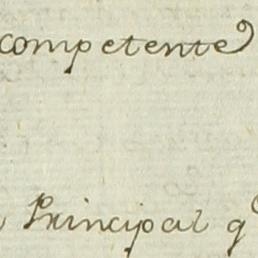 competente
Principal q